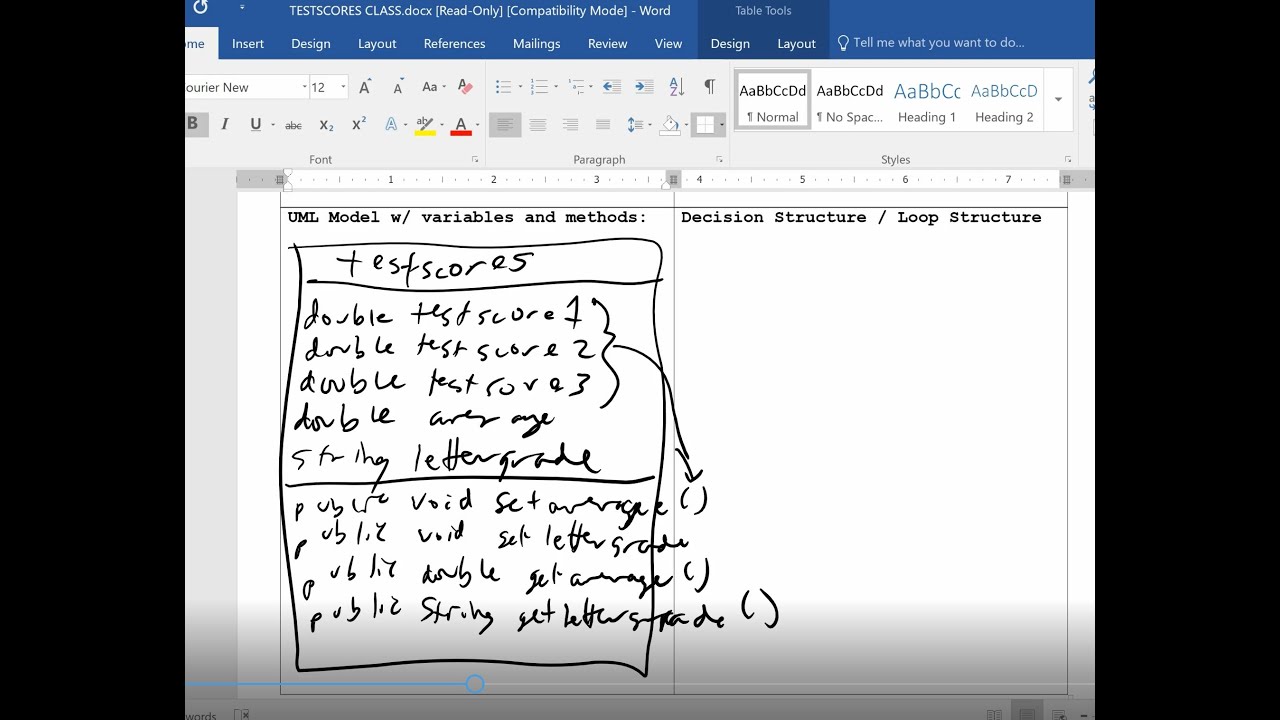 TESTSCORES CLASS.docx [Read-Only] [Compatibility Mode] - Word
Table Tools
ome Insert Design Layout References Mailings Review View Design Layout Tell me what you want to do...
ourier New 12 Aa
B I U abc X2 X2 A A
AaBbCcDd AaBbCcDd AaBbCc AaBbCcD
¶ Normal ¶ No Spac... Heading 1 Heading 2
Font Paragraph Styles
1 2 3 4 5 6 7
UML Model w/ variables and methods:
testscores
double testscore1
double testscore2
double testsore3
double average
string lettergrade
public void setaverage()
public void setlettergrade
public double getaverage()
public String getlettergrade()
Decision Structure / Loop Structure
words